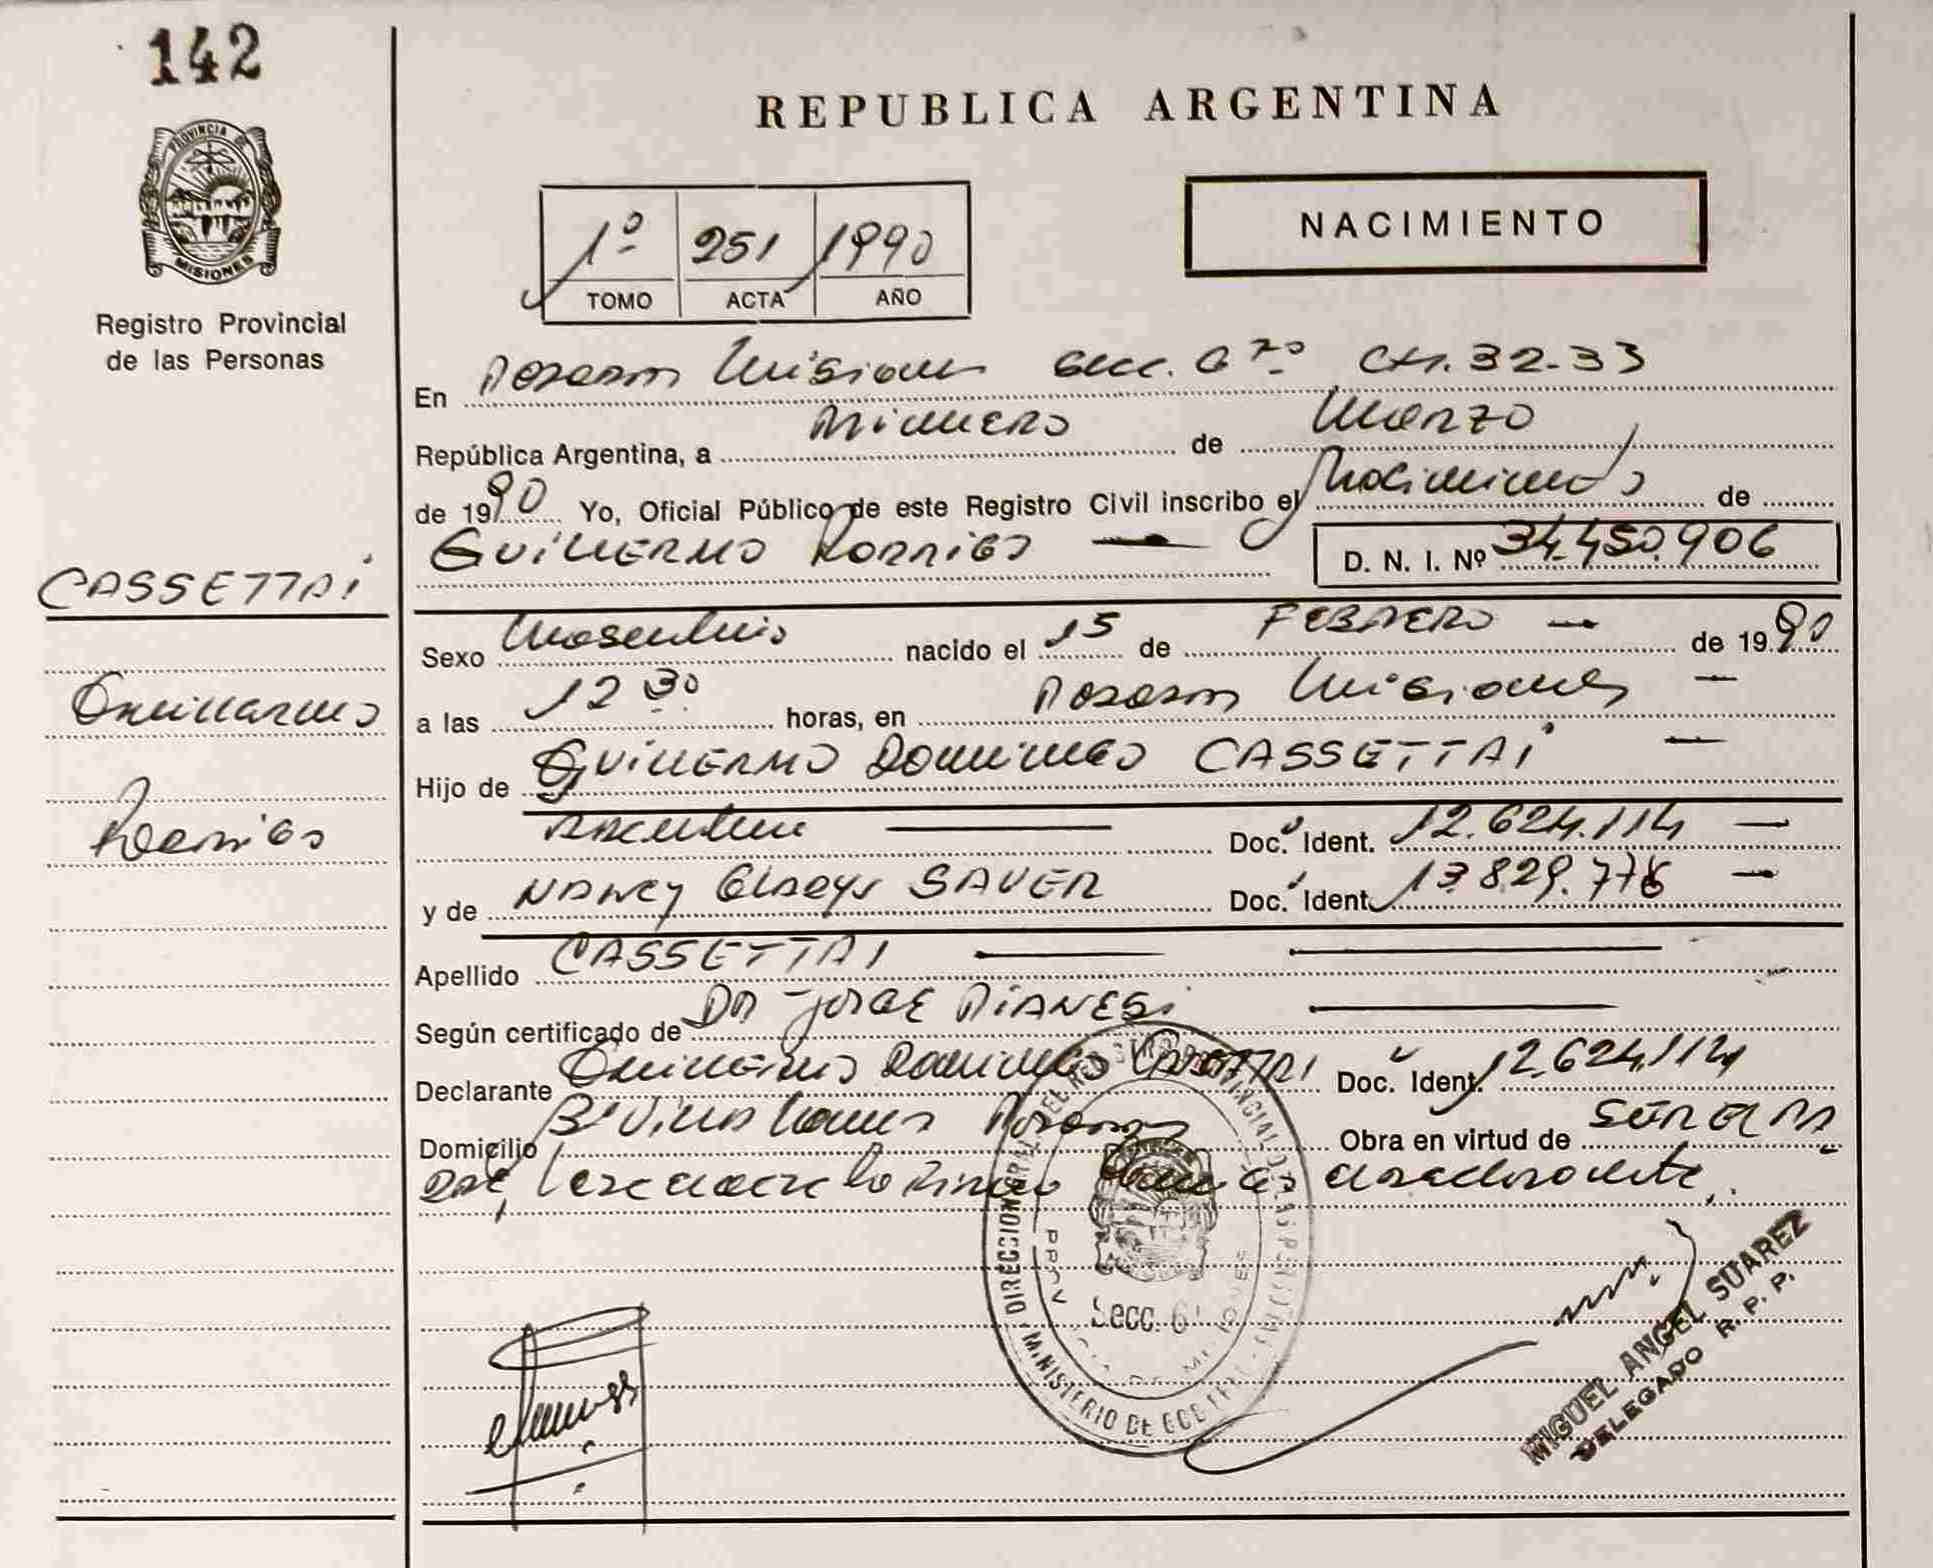 142
REPUBLICA ARGENTINA
PROVINCIA DE
MISIONES
NACIMIENTO
1º 251 1990
TOMO ACTA AÑO
Registro Provincial
de las Personas
En Posadas Misiones Secc. 6ta Ch. 32-33
República Argentina, a Primero de Marzo
de 1990 Yo, Oficial Público de este Registro Civil inscribo el Nacimiento de
GUILLERMO RODRIGO D. N. I. Nº 34.450.906
CASSETTAI
Sexo Masculino nacido el 15 de FEBRERO de 1990
Guillermo
a las 12 30 horas, en Posadas Misiones
Hijo de GUILLERMO DOMINGO CASSETTAI
Rodrigo
Argentino Doc. Ident. 12.624.114
y de NANCY Gladys SAUER Doc. Ident. 13.829.776
Apellido CASSETTAI
Según certificado de DR JORGE PIANESI
Declarante Guillermo Domingo CASSETTAI Doc. Ident. 12.624.114
Domicilio Bº Villa Posadas Obra en virtud de SER EL PA
DRE, Leida el acta la firma el declarante.
DIRECCION GRAL. DEL REGISTRO PROVINCIAL DE LAS PERSONAS
PROV
Secc. 6
MINISTERIO DE GOB
MIGUEL ANGEL SUAREZ
DELEGADO R. P. P.